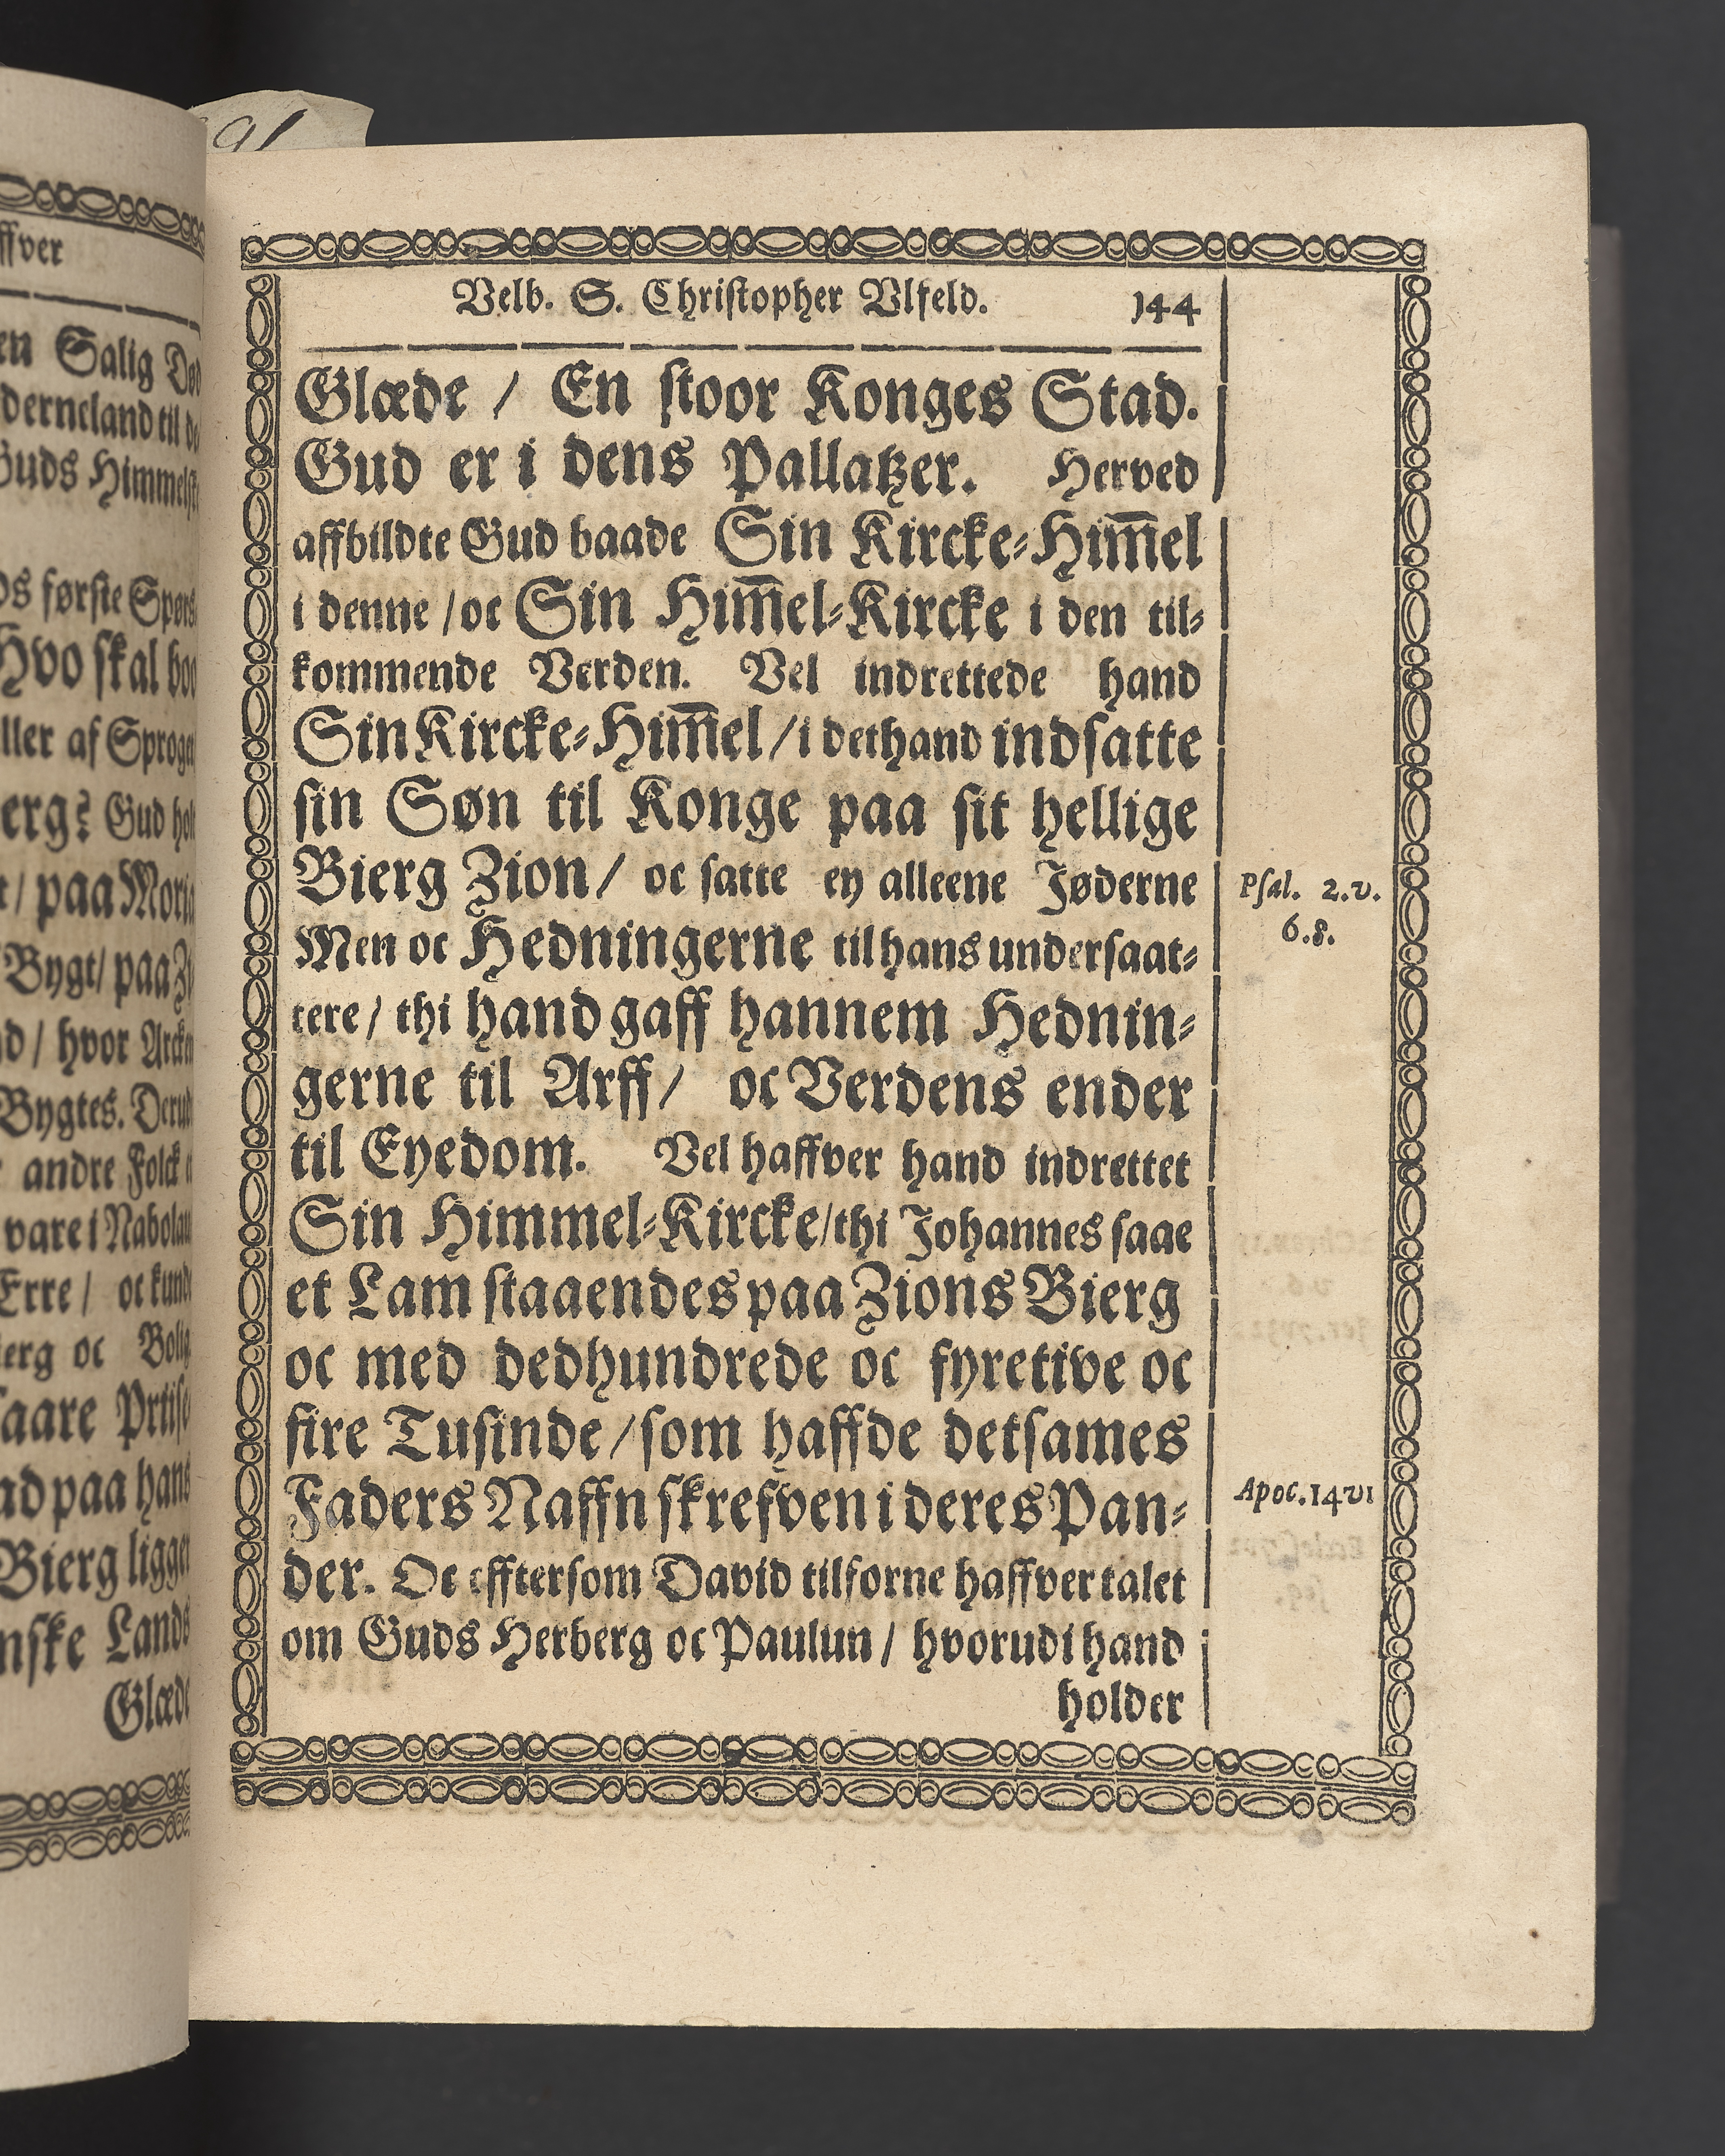 91
ffver
en Salig Død
derneland til de
Guds Himmelste
ds første Spørs
Hvo skal boo
ller af Sproget
erg? Gud hol
t / paa Moria
Bygt / paa Zi
d / hvor Arcken
Bygtes. Derud
andre Folck
vare i Nabolau
Erre / oc kunde
ierg oc Bolig
saare Prtise
ad paa hans
Bierg ligger
nske Lands
Glæde
Velb. S. Christopher Vlfeld. 144
Glæde / En stoor Konges Stad.
Gud er i dens Pallatzer. Herved
affbildte Gud baade Sin Kircke-Him̅el
i denne / oc Sin Him̅el-Kircke i den til-
kommende Verden. Vel indrettede hand
Sin Kircke-Him̅el / i det hand indsatte
sin Søn til Konge paa sit hellige
Bierg Zion / oc satte ey alleene Jøderne
Men oc Hedningerne til hans undersaat-
tere / thi hand gaff hannem Hednin-
gerne til Arff / oc Verdens ender
til Eyedom. Vel haffver hand indrettet
Sin Himmel-Kircke / thi Johannes saae
et Lam staaendes paa Zions Bierg
oc med dedhundrede oc fyretive oc
fire Tusinde / som haffde detsames
Faders Naffn skrefven i deres Pan-
der. Oc efftersom David tilforne haffver talet
om Guds Herberg oc Paulun / hvorudi hand
holder
Psal. 2. v.
6. 8.
Apoc. 14 v 1